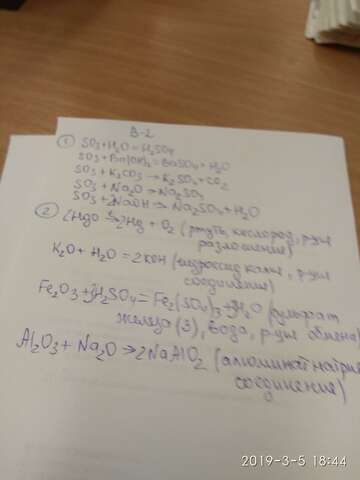 В-2
① SO3+H2O=H2SO4
SO3+Ba(OH)2=BaSO4+H2O
SO3+K2CO3→K2SO4+CO2
SO3+Na2O→Na2SO4
SO3+2NaOH→Na2SO4+H2O
② 2HgO →2Hg+O2 (ртуть, кислород, р-ция
разложения)
K2O+H2O=2KOH (гидроксид калия, р-ция
соединения)
Fe2O3+3H2SO4=Fe2(SO4)3+3H2O (сульфат
железа (3), вода, р-ция обмена)
Al2O3+Na2O→2NaAlO2 (алюминат натрия
соединения)
2019-3-5 18:44